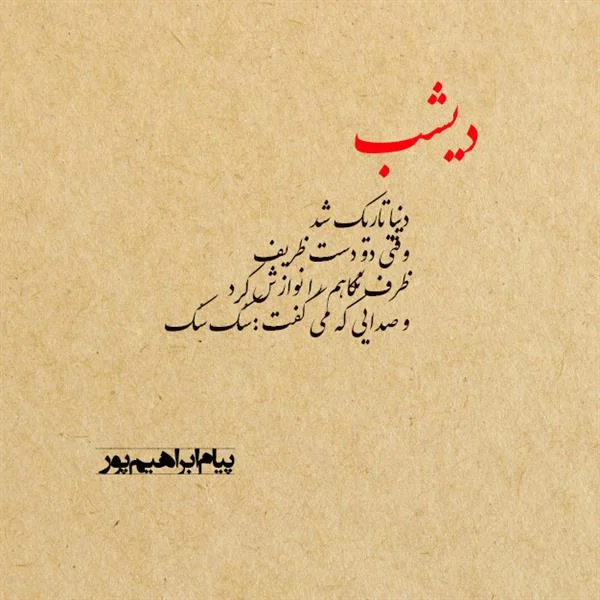 دیشب
دنیا تاریک شد
وقتی دو دست ظریف
ظرف نگاهم را نوازش کرد
و صدایی که می گفت : سک سک
پیام ابراهیم پور